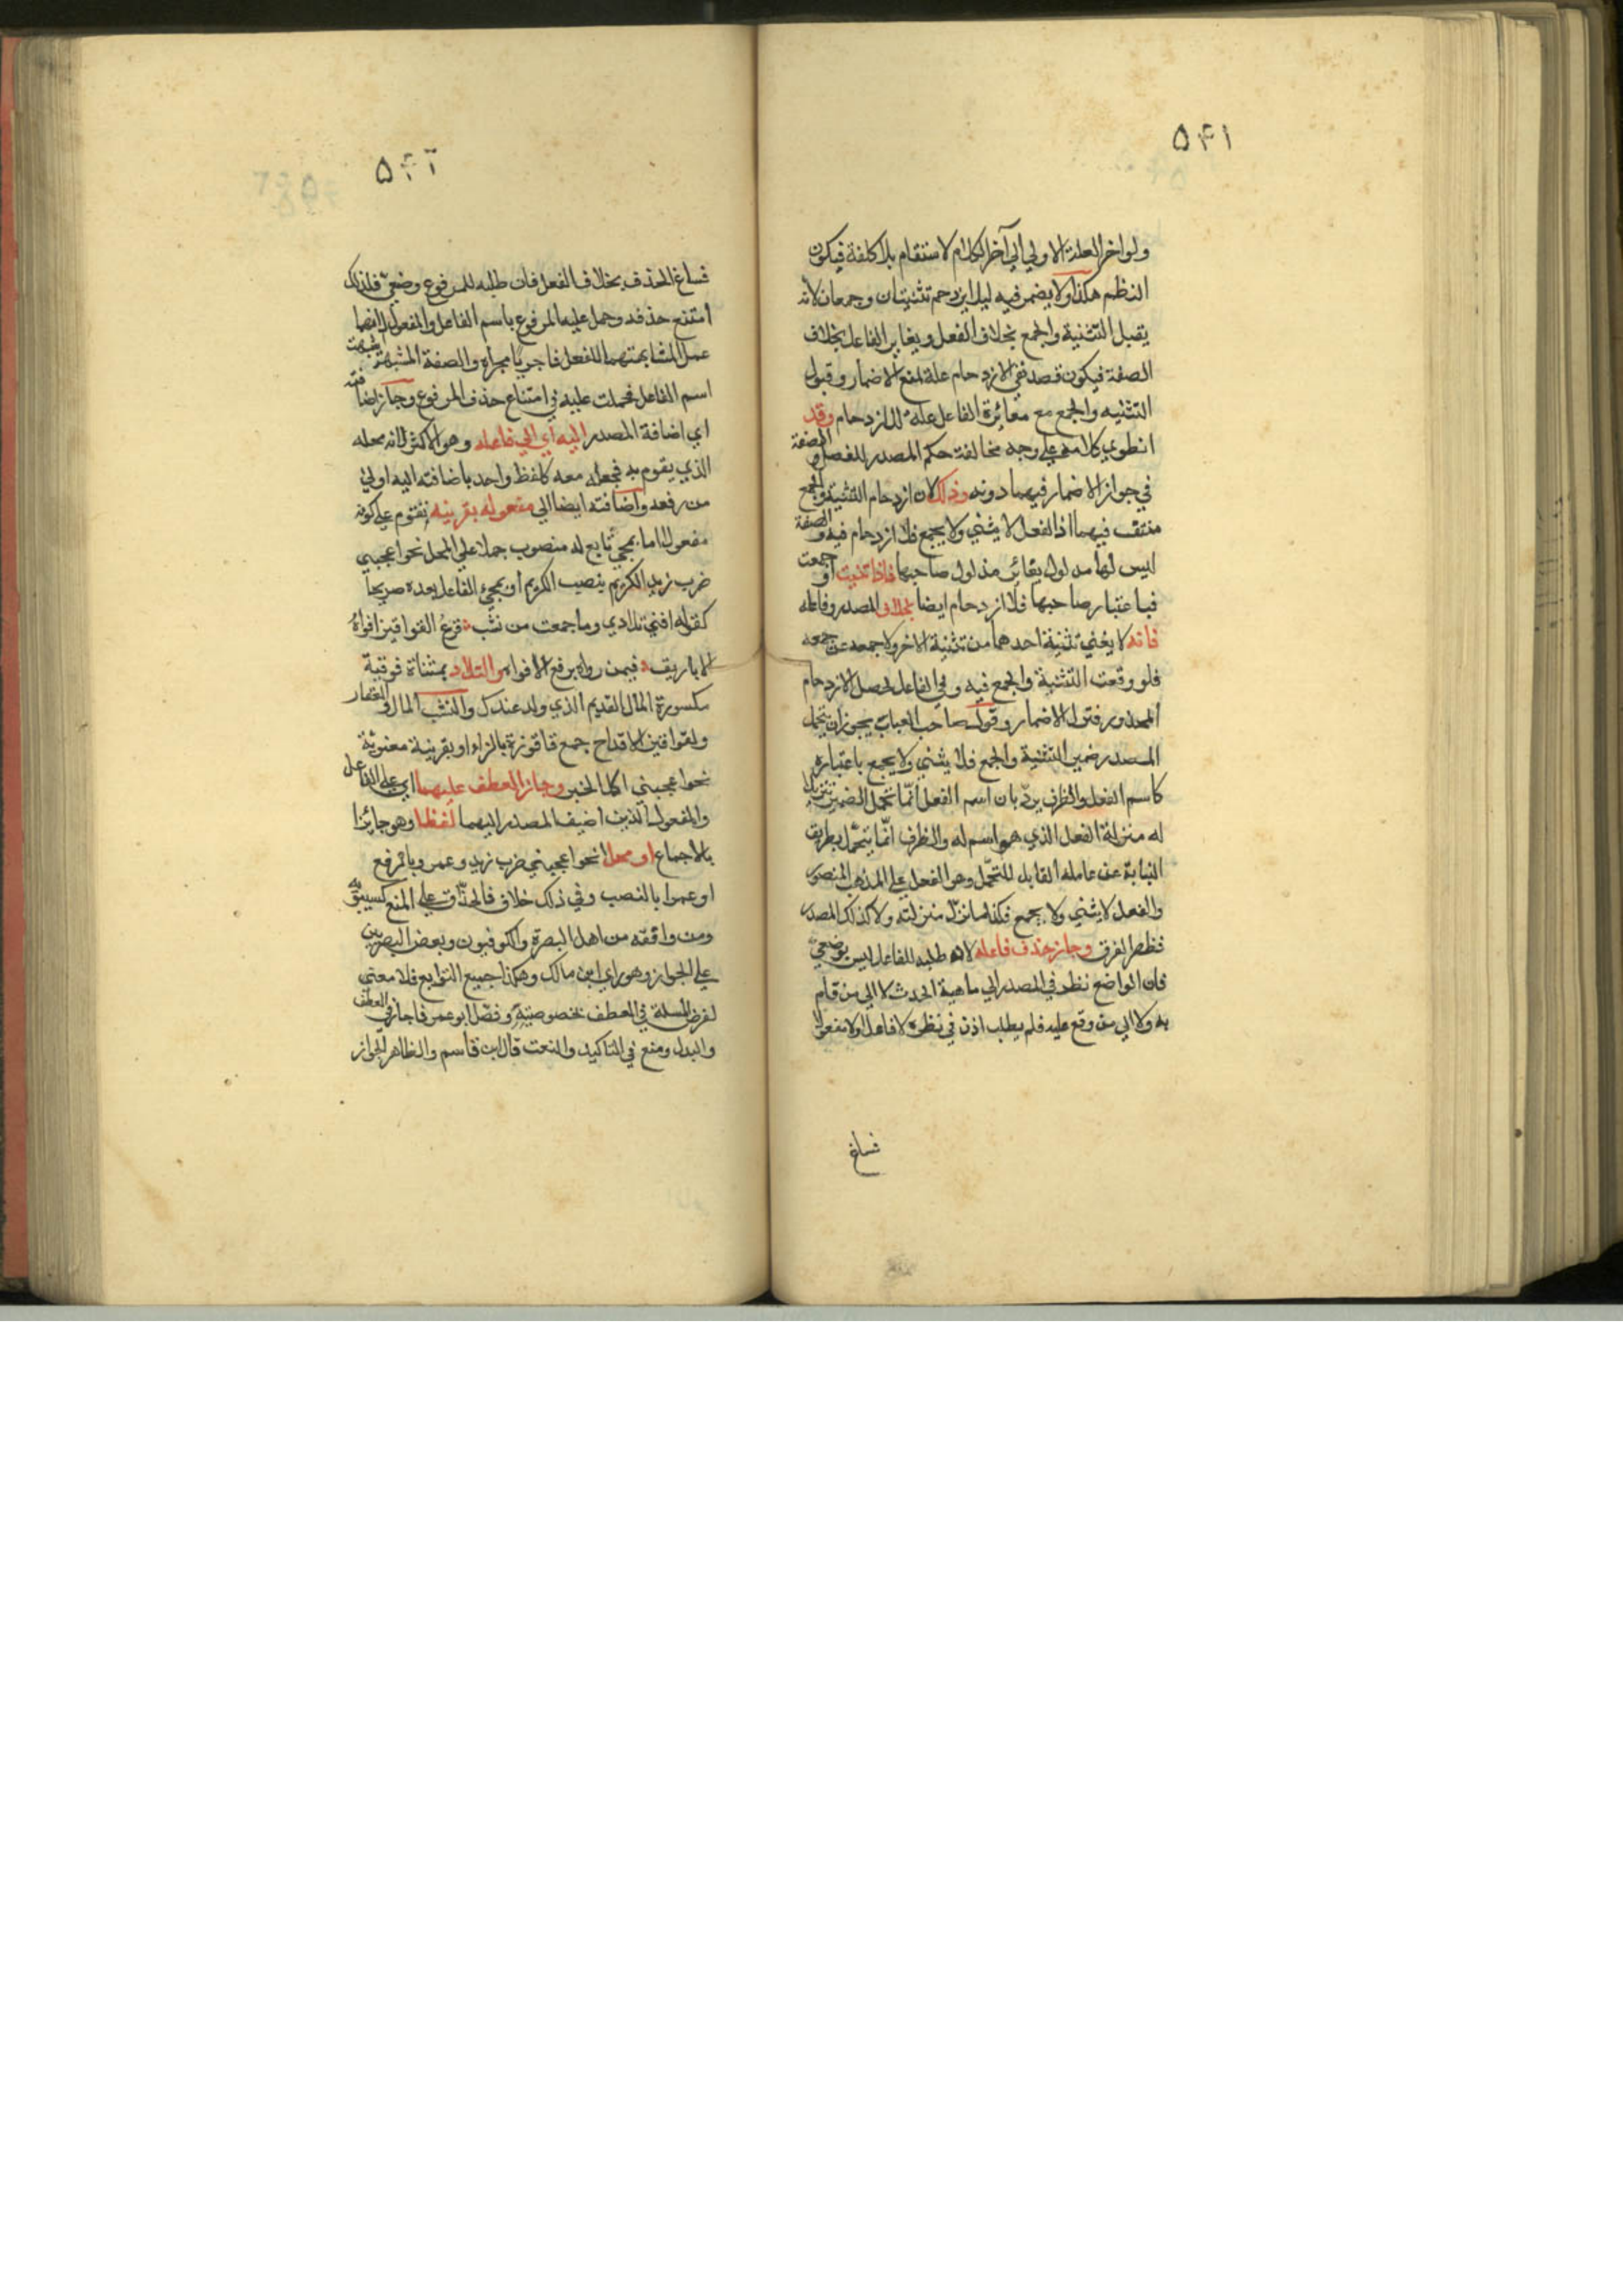 ٥٤١
ولو اخر العلة الاولي الي آخر الكلام لاستقام بلا كلفة فيكون
النظم هكذا ولا يضمر فيه ليلا يزدحم تثنيتان وجمعان لانه
يقبل التثنية والجمع بخلاف الفعل ويغاير الفاعل بخلاف
الصفة فيكون قصد نفي الازدحام علة لمنع الاضمار وقبول
التثنيه والجمع مع مغائرة الفاعل علة للازدحام وقد
انطوي كلامه علي وجه مخالفة حكم المصدر للفعل والصفة
في جواز الاضمار فيهما دونه وذلك لان ازدحام التثنية والجمع
منتف فيهما اذ الفعل لا يثني ولا يجمع فلا ازدحام فيه والصفة
ليس لها مدلول يغائر مدلول صاحبها فاذا تثنيت او جمعت
فباعتبار صاحبها فلا ازدحام ايضا بخلاف المصدر وفاعله
فانه لا يغني تثنية احدهما من تثنية الاخر ولا جمعه عن جمعه
فلو وقعت التثنية والجمع فيه وفي الفاعل لحصل الازدحام
المحذور فترك الاضمار وقول صاحب العباب يجوز ان يتحمل
المصدر ضمير التثنية والجمع فلا يثني ولا يجمع باعتباره
كاسم الفعل والظرف يردّ بان اسم الفعل انّما تحمل الضمير تنزيلا
له منزلة الفعل الذي هو اسم له والظرف انّما يتحمل بطريق
النيابة عن عامله القابل للتحمّل وهو الفعل علي المذهب المنصور
والفعل لا يثني ولا يجمع فكذا ما نزّل منزلته ولا كذلك المصدر
فظهر الفرق وجاز حذف فاعله لان طلبه للفاعل ليس بوضعيّ
فان الواضع نظر في المصدر الي ماهية الحدث لا الي من قام
به ولا الي من وقع عليه فلم يطلب اذن في نظره لا فاعلا ولا مفعولا
فساغ
٥٤٢
فساغ الحذف بخلاف الفعل فان طلبه للمرفوع وضعيّ فلذلك
امتنع حذفه وحمل عليه المرفوع باسم الفاعل والمفعول
عمل المشابهتهما للفعل فاجريا مجراه والصفة المشبهة شبهت
اسم الفاعل فحملت عليه في امتناع حذف المرفوع وجاز اضافته
اي اضافة المصدر اليه اي الي فاعله وهو الاكثر لانه محله
الذي يقوم به فجعله معه كلفظ واحد باضافته اليه اولي
من رفعه واضافته ايضا الي مفعوله بقرينه تقوم علي كونه
مفعولا اما بمجيّ تابع له منصوب حملا علي المحل نحو اعجبني
ضرب زيد الكريم بنصب الكريم او بمجيّ الفاعل بعده صريحا
كقوله افني تلادي وما جمعت من نشب قرعُ القواقيز افواهُ
الاباريق فيمن رواه برفع الافواه والتلاد بمثناة فوقية
مكسورة المال القديم الذي ولد عندك والنشب المال والعقار
والقواقيز الاقداح جمع قاقوزة بالزاء او بقرينة معنوية
نحو اعجبني اكل الخبز وجاز العطف عليهما اي علي الفاعل
والمفعول الذين اضيف المصدر اليهما لفظا وهو جائز
بالاجماع او محلا نحو اعجبني ضرب زيد وعمرو بالرفع
او عمرا بالنصب وفي ذلك خلاف فالحذّاق علي المنع كسيبويه
ومن وافقه من اهل البصرة والكوفيون وبعض البصريين
علي الجواز وهو راي ابن مالك وهكذا جميع التوابع فلا معني
لفرض المسلة في العطف بخصوصيته وفصّل ابو عمر فاجاز في العطف
والبدل ومنع في التاكيد والنعت قال ابن قاسم والظاهر الجواز